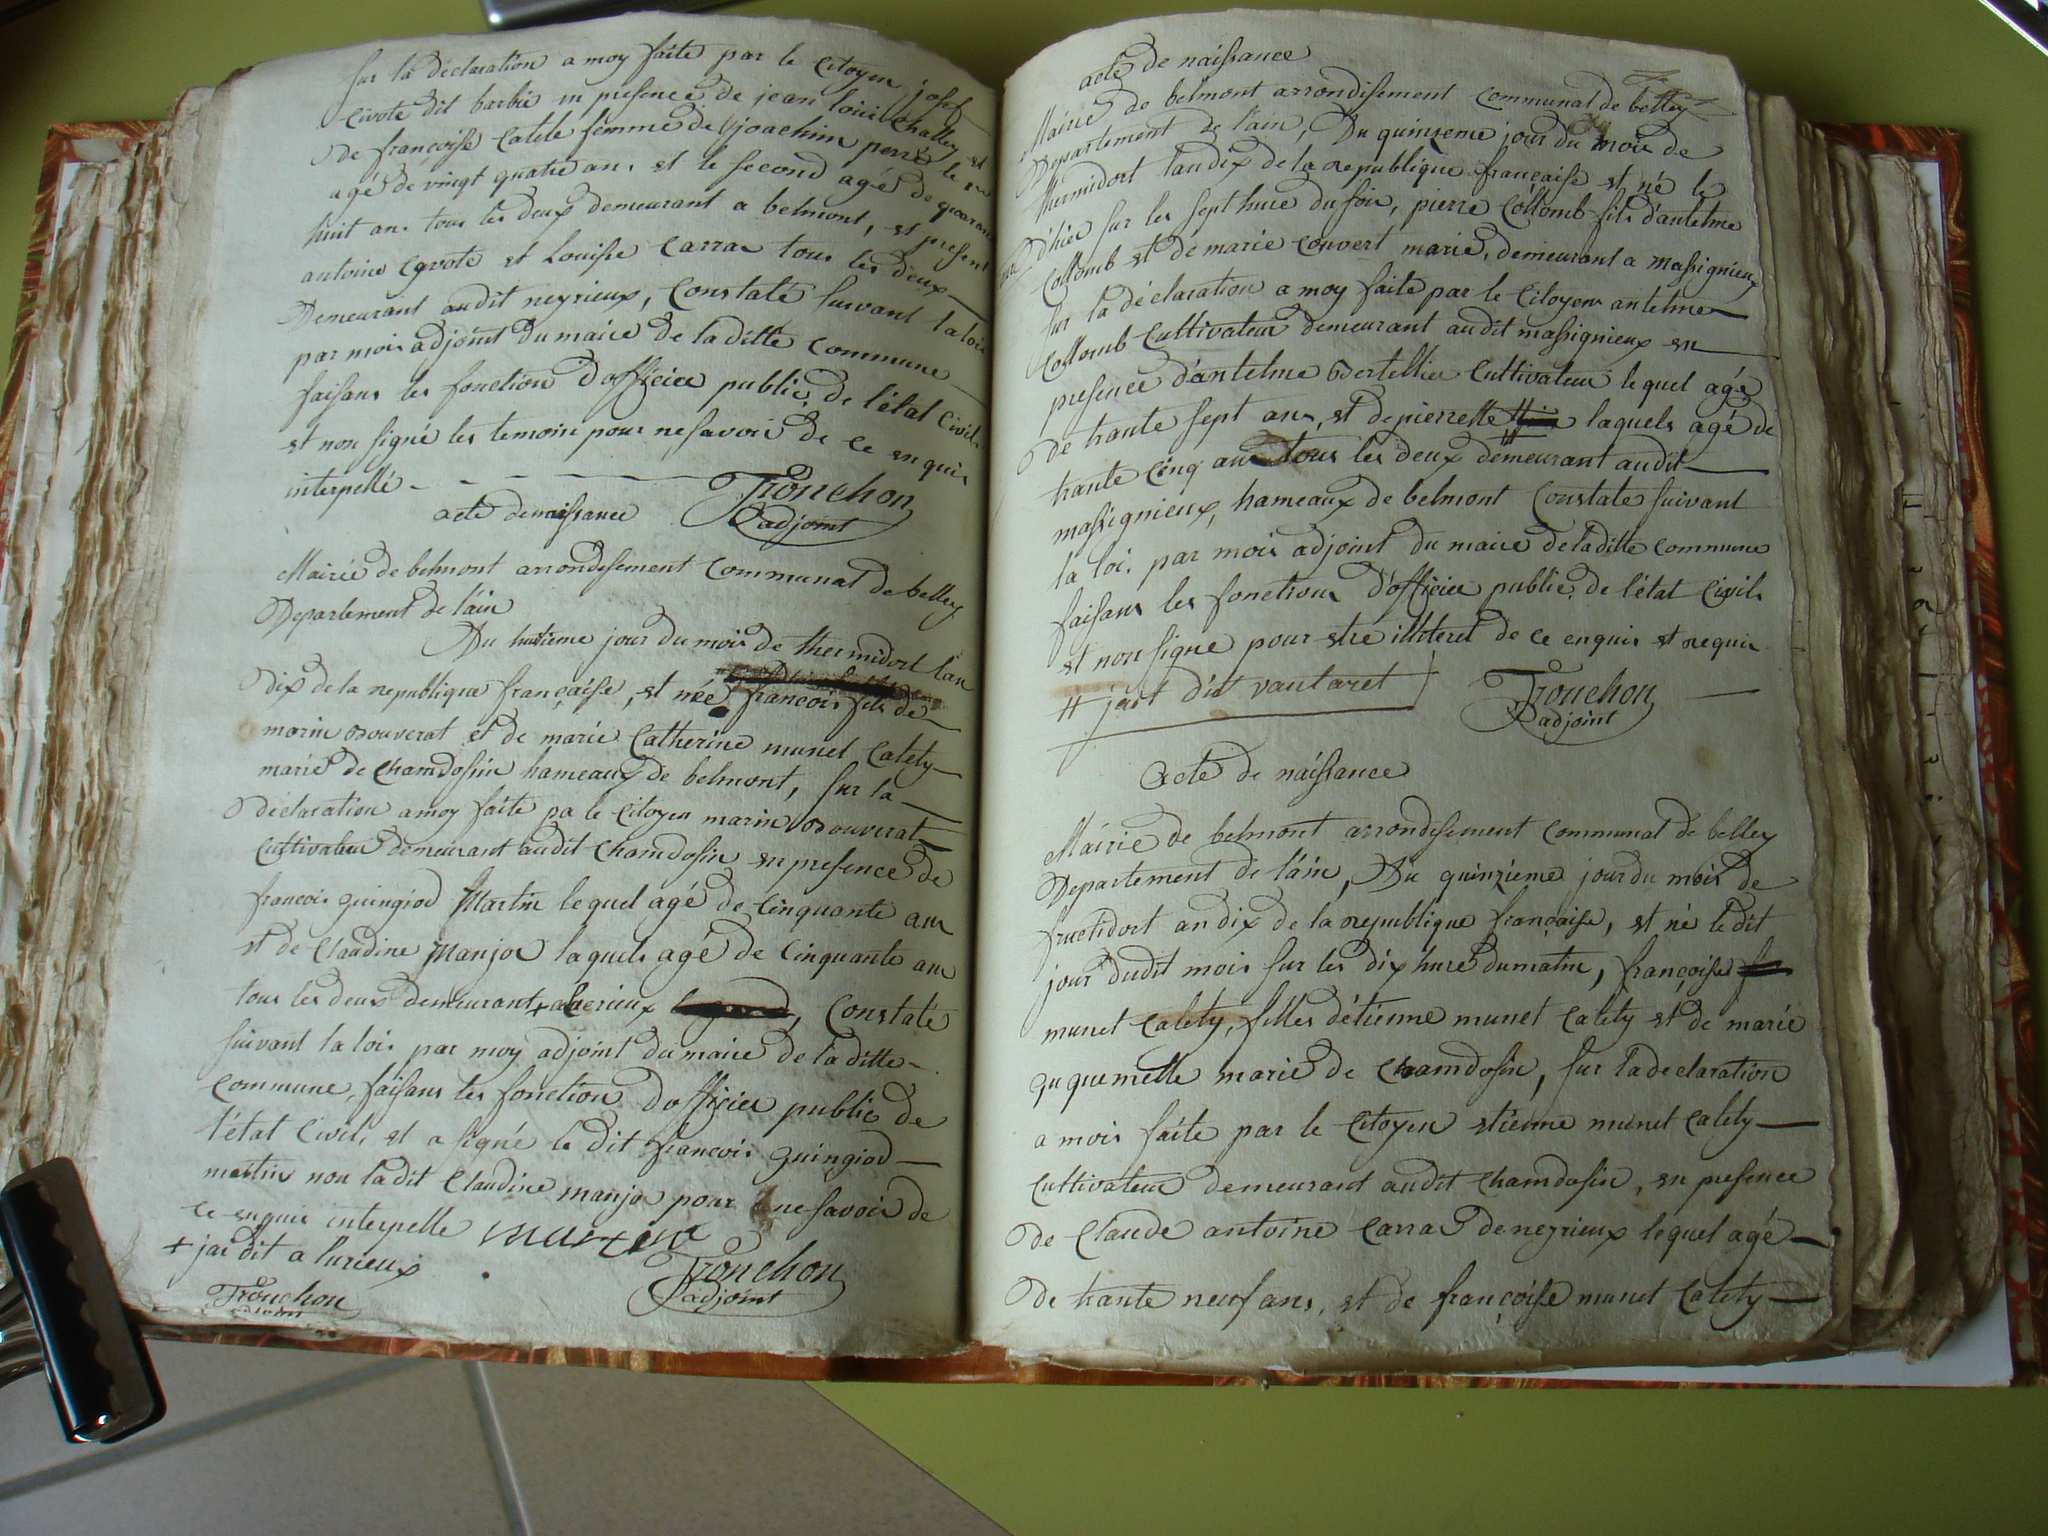 sur la déclaration a moy faite par le Citoyen joseph
Civote dit barbie en presence de jean louis Challey et
de françoise Catele femme de joachim perre le
agé de vingt quatre ans et le second agé de quarante
huit ans tous les deux demeurant a belmont, et present
antoine Cyvote et Louise Carra tous les deux
Demeurant audit neyrieux, Constaté suivant la loi
par mois adjoint du maire de la ditte commune
faisans les fonction d'officier public de l'état Civil
et non signé les temoin pour ne savoir de ce enquis
interpellé
Tronchon
adjoint
acte de naissance
Mairie de belmont arrondisement Communal de belley
Departement de l'ain
Du huitieme jour du mois de thermidort l'an
dix de la republique française, est née françois fils de
marin bouverat et de marie Catherine munet Catety
marié de Chamdossin hameaux de belmont, sur la
déclaration a moy faite pa le Citoyen marin bouverat
Cultivateur demeurant audit Chamdosin en presence de
francois guingiod Martin le quel agé de Cinquante ans
et de Claudine Manjot laquels agé de Cinquante ans
tous les deux demeurant + a Constaté
suivant la loi par moy adjoint du maire de la ditte
Commune, faisans les fonction d'officier public de
l'état Civil, et a signé le dit francois guingiod
martin non ladit Claudine manjot pour ne savoir de
ce enquis interpelle marten
Tronchon
adjoint
+ jai dit a lurieux
Tronchon
adjoint
acte de naissance
Mairie de belmont arrondisement communal de belley
Departement de l'ain, Du quinzeme jour du mois de
thermidort l'an dix de la republique française est né le
d'hier sur les sept hure du soir, pierre Collomb fils d'antelme
Collomb et de marie Couvert marié, demeurant a massignieux
sur la déclaration a moy faite par le Citoyen antelme
Collomb Cultivateur demeurant audit massignieux en
presence d'antelme bertellier Cultivateur le quel agé
de trante sept ans, et de pierrette # laquels agé de
trante cinq ans tous les deux demeurant audit
massignieux, hameaux de belmont Constaté suivant
la loi par mois adjoint du maire de laditte commune
faisans les fonctions d'officier public de l'état Civil
et non signe pour etre illiteret de ce enquis et requis
# jait dit vautaret
Tronchon
adjoint
Acte de naissance
Mairie de belmont arrondisement communal de belley
Departement de l'ain, Du quinzieme jour du mois de
fructidort an dix de la republique française, est né le dit
jour dudit mois sur les dix hure du matin, françoise
munet Catety, filles d'étienne munet Catety et de marie
guquemette marié de Chamdosin, sur la declaration
a mois faite par le Citoyen etienne munet Catety
Cultivateur demeurant audit Chamdosin, en presence
de Claude antoine Carra de neyrieux lequel agé
de trante neuf ans, et de françoise munet Catety